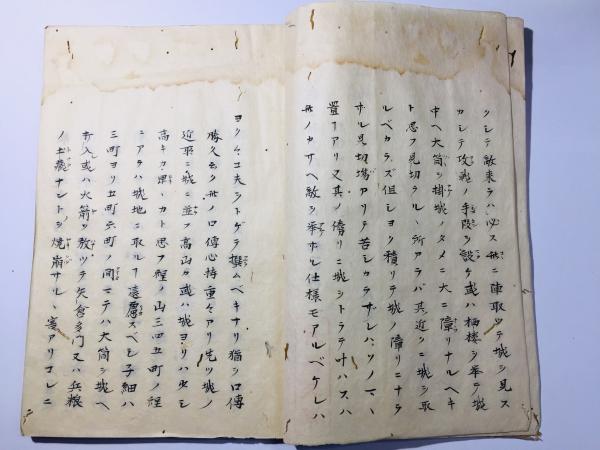 クシテ敵来ラハ必ス此ニ陣取ツテ城シ見ス
カシテ攻戦ノ手段シ設ケ或ハ栖楼シ挙テ城
中ヘ大筒シ掛城ノタメニ大ニ障リナルヘキ
ト思フ見切テル丶所アラバ其近クニ城シ取
ルベカラズ但シヨク積リテ城ノ障リニナラ
ザル見切場アリテ苦シカラザレハソノマ丶
置テアリ又其ノ傍リニ城シトラテ叶ハスハ
此ノカサヘ敵シ挙ホル仕様モアルベケレハ
ヨク丶工夫シトゲテ撰ムベキナリ猶シロ傳
勝久玄ク此ノロ傳心持重々アリ先ツ城ノ
近所ニ城ニ並フ高山カ或ハ城ヨリハ少シ
高キカ果カトモ思フ程ノ山三四五町ノ程
ニアラハ城地ニ取ルコ遠慮スベシ子細ハ
三町ヨリ五町六町ノ間マテハ大筒シ城ヘ
打入或ハ火箭シ敷ツテ矢倉多門又ハ兵粮
ノ土蔵ナントシ焼崩サル丶害アリコレニ